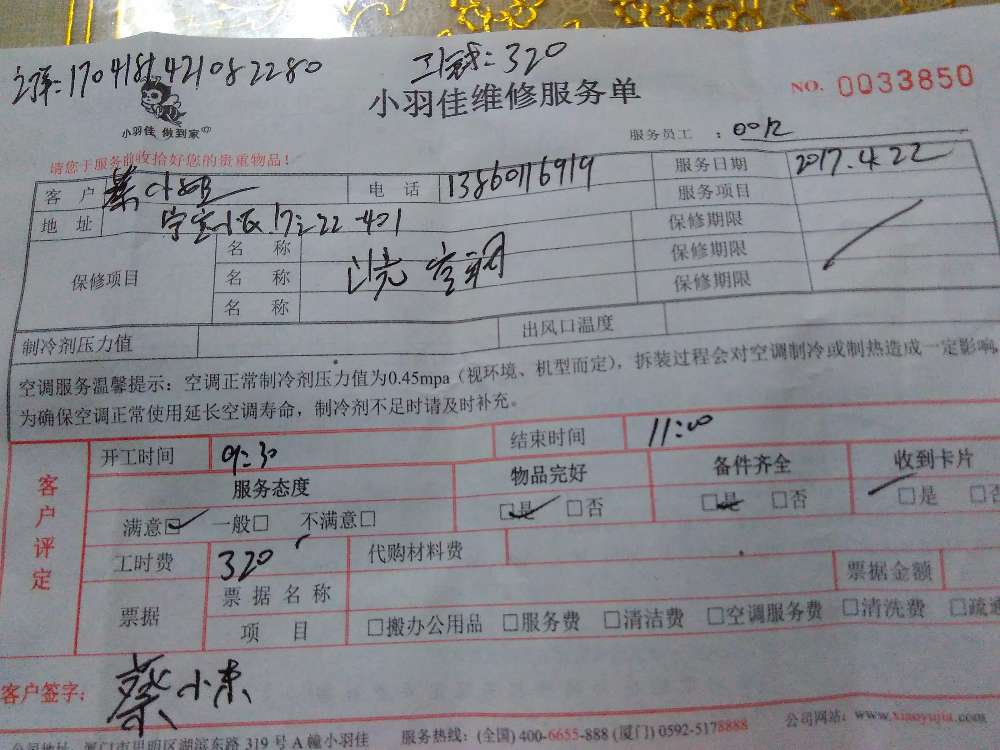 1704181421082280
320
小羽佳 做到家
小羽佳维修服务单
NO. 0033850
服务员工 : 0012
请您于服务前收拾好您的贵重物品!
客户 蔡小姐 电话 13860116919 服务日期 2017.4.22
地址 17:22-401 服务项目
保修项目 名称 保修期限
名称 洗空调 保修期限
名称 保修期限
制冷剂压力值 出风口温度
空调服务温馨提示:空调正常制冷剂压力值为0.45mpa(视环境、机型而定),拆装过程会对空调制冷或制热造成一定影响,
为确保空调正常使用延长空调寿命,制冷剂不足时请及时补充。
客户评定
开工时间 09:30 结束时间 11:00
服务态度 物品完好 备件齐全 收到卡片
满意□ 一般□ 不满意□ □是 □否 □是 □否 □是 □否
工时费 320 代购材料费
票据 票据名称 票据金额
项目 □搬办公用品 □服务费 □清洁费 □空调服务费 □清洗费 □疏通
客户签字: 蔡小东
公司地址:厦门市思明区湖滨东路 319 号 A 幢小羽佳 服务热线:(全国) 400-6655-888 (厦门) 0592-5178888 公司网站:www.xiaoyujia.com